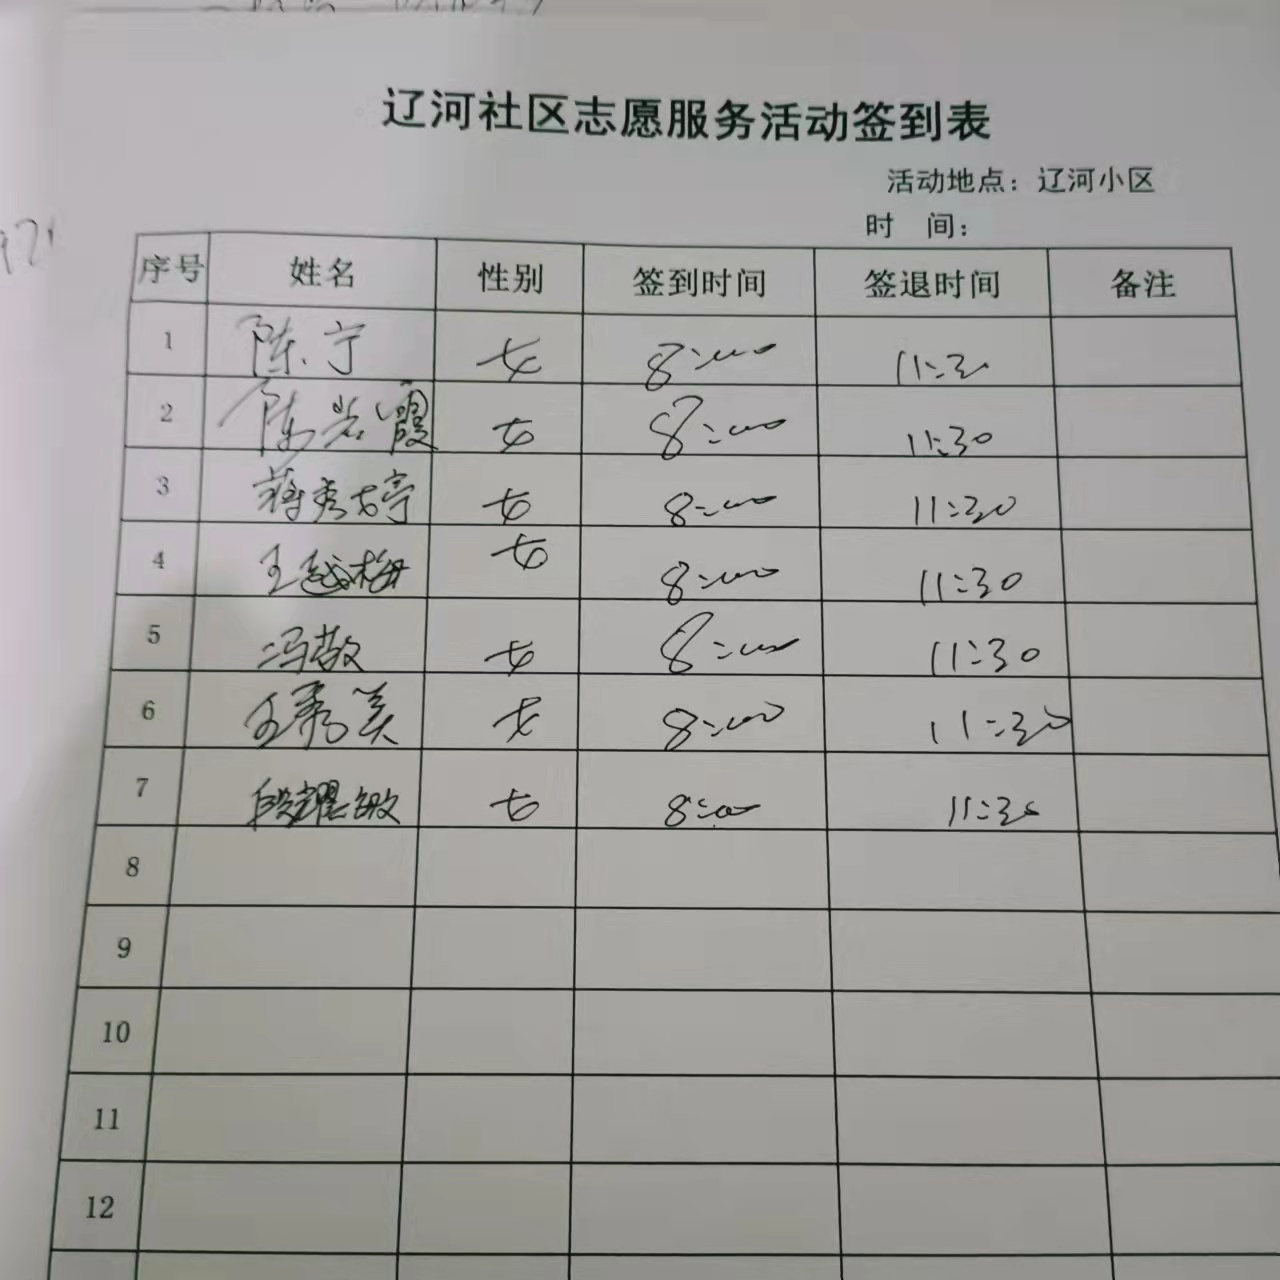 辽河社区志愿服务活动签到表
活动地点：辽河小区
时 间：
序号 姓名 性别 签到时间 签退时间 备注
1 陈宁 女 8:00 11:30
2 陈岩霞 女 8:00 11:30
3 蒋秀婷 女 8:00 11:30
4 王越梅 女 8:00 11:30
5 冯敬 女 8:00 11:30
6 王秀美 女 8:00 11:30
7 段耀敏 女 8:00 11:30
8
9
10
11
12